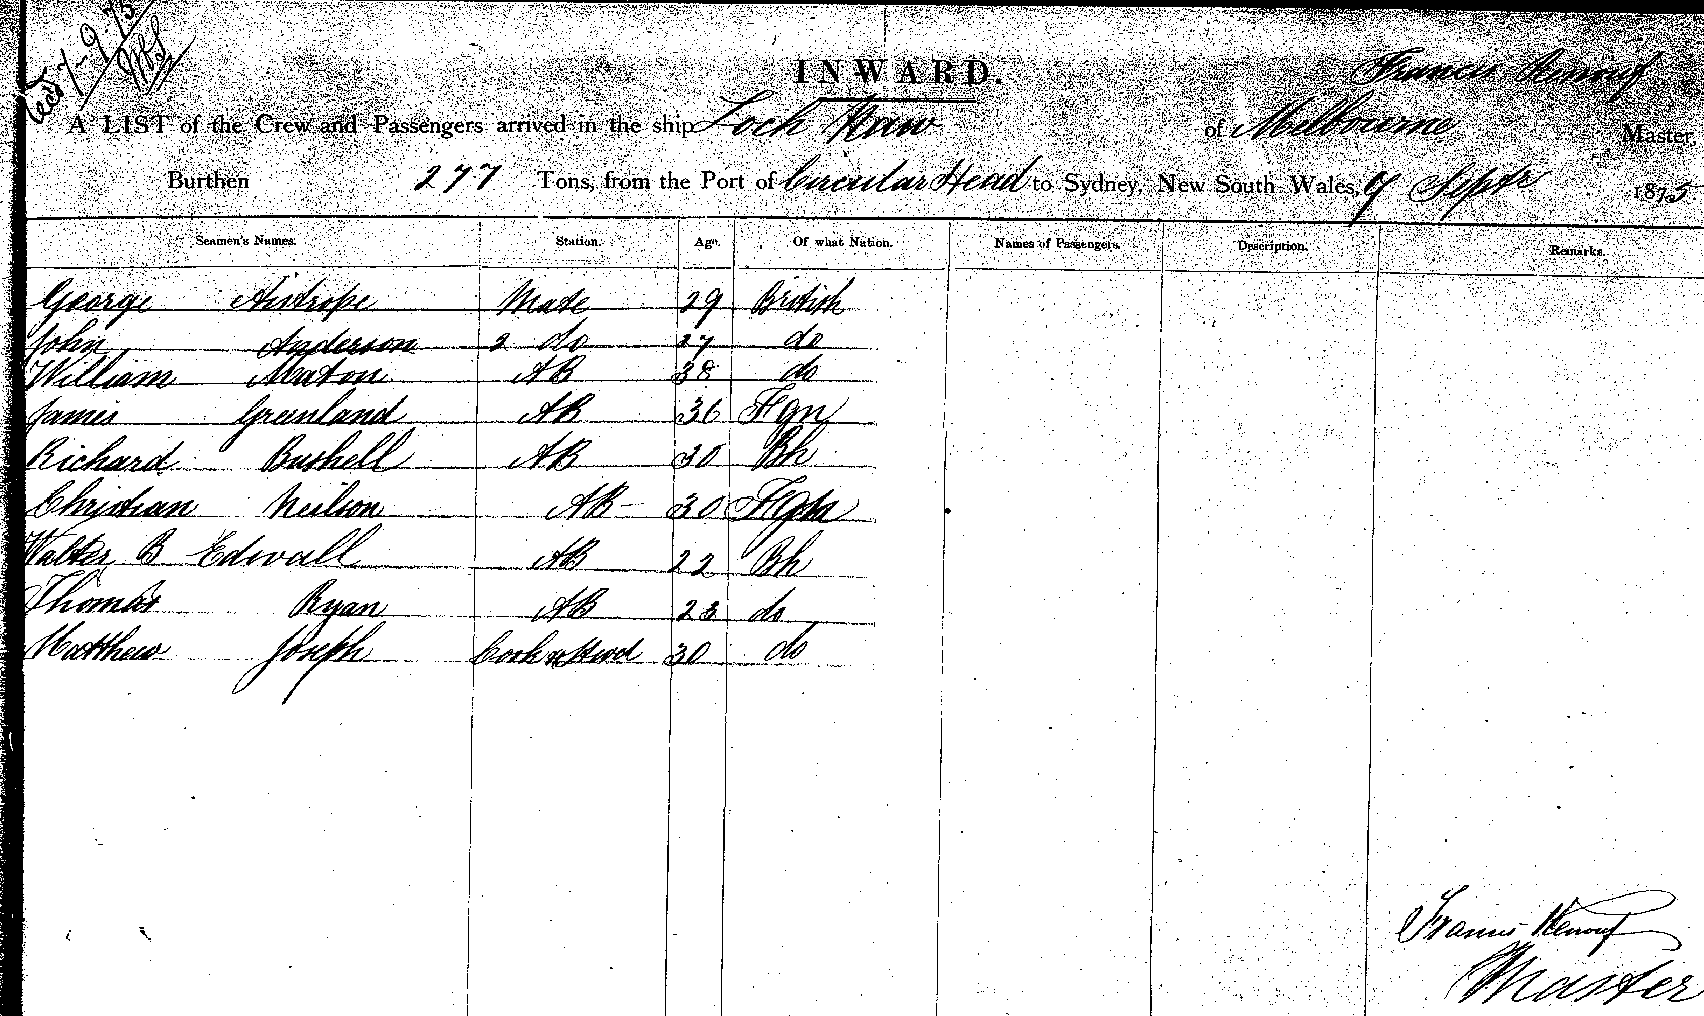 7-9-75
INWARD.
Francis Renouf
A LIST of the Crew and Passengers arrived in the ship Loch of Melbourne Master,
Burthen 277 Tons, from the Port of Circular Head to Sydney, New South Wales, 7 Septr 1875
Seamen's Names. Station. Age. Of what Nation. Names of Passengers. Description. Remarks.
George Mate 29 British
John Anderson 2 do 27 do
William Maton AB 38 do
James Greenland AB 36 Fgn
Richard Bushell AB 30 Bh
Christian Neilson AB 30 Fgn
Walter B Edwall AB 22 Bh
Thomas Ryan AB 23 do
Matthew Joseph Cook & Stwd 30 do
Francis Renouf
Master